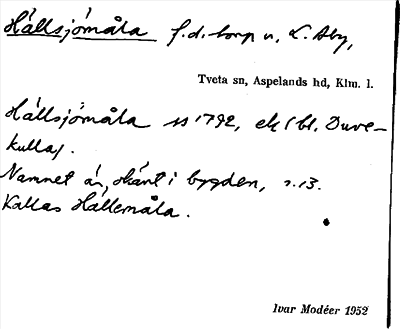 Hällsjömåla f.d. torp u. L. Aby,
Tveta sn, Aspelands hd, Klm. l.
Hällsjömåla 1792, ek (bl. Duve-
kulla).
Namnet är okänt i bygden,
Kallas Hällemåla.
Ivar Modéer 1952